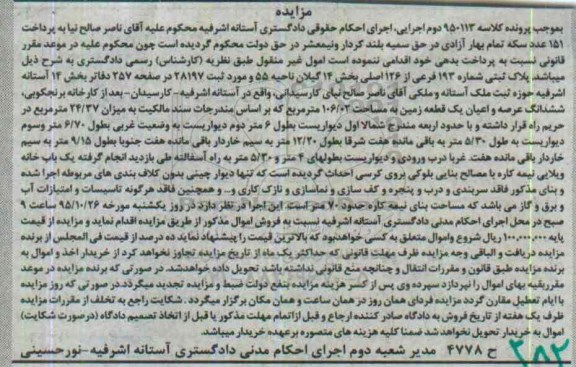 مزایده
بموجب پرونده کلاسه ۹۵۰۱۱۳ دوم اجرایی، اجرای احکام حقوقی دادگستری آستانه اشرفیه محکوم علیه آقای ناصر صالح نیا به پرداخت
۱۵۱ عدد سکه تمام بهار آزادی در حق سمیه بلند کردار ونیمعشر در حق دولت محکوم گردیده است چون محکوم علیه در موعد مقرر
قانونی نسبت به پرداخت بدهی خود اقدامی ننموده است اموال غیر منقول طبق نظریه (کارشناس) رسمی دادگستری به شرح ذیل
میباشد. پلاک ثبتی شماره ۱۹۳ فرعی از ۱۲۶ اصلی بخش ۱۴ گیلان ناحیه ۵۵ و مورد ثبت ۲۸۱۹۷ در صفحه ۲۵۷ دفاتر بخش ۱۴ آستانه
اشرفیه حوزه ثبت ملک آستانه و ملکی آقای ناصر صالح نیای کارسیدانی، واقع در آستانه اشرفیه-کارسیدان-بعد از کارخانه برنجکوبی،
ششدانگ عرصه و اعیان یک قطعه زمین به مساحت ۱۰۶/۰۲ مترمربع که بر اساس مندرجات سند مالکیت به میزان ۲۴/۳۷ مترمربع در
حریم راه قرار داشته و با حدود اربعه مندرج شمالا اول دیواریست بطول ۶ متر دوم دیواریست به وضعیت غربی بطول ۶/۷۰ متر وسوم
دیواریست به طول ۵/۳۰ متر به باقی مانده هفت شرقا بطول ۱۲/۲۰ متر به سیم خاردار باقی مانده هفت جنوبا بطول ۹/۱۵ متر به سیم
خاردار باقی مانده هفت. غربا درب ورودی و دیواریست بطولهای ۴ متر و ۵/۳۰ متر به راه آسفالته طی بازدید انجام گرفته یک باب خانه
ویلایی نیمه کاره با مصالح بنایی بلوکی بروی کرسی احداث گردیده است که تنها دیوار چینی بدون کلاف بندی های مربوطه اجرا شده
و بنای مذکور فاقد سربندی و درب و پنجره و کف سازی و نماسازی و نازک کاری و... و همچنین فاقد هرگونه تاسیسات و امتیازات آب
و برق و گاز می باشد که مساحت بنای نیمه کاره حدود ۷۰ متر است. این اجرا در نظر دارد در روز یکشنبه مورخه ۹۵/۱۰/۲۶ ساعت ۹
صبح در محل اجرای احکام مدنی دادگستری آستانه اشرفیه نسبت به فروش اموال مذکور از طریق مزایده اقدام نماید و مزایده از قیمت
پایه ۱۰۰,۰۰۰,۰۰۰ ریال شروع واموال متعلق به کسی خواهدبود که بالاترین قیمت را پیشنهاد نماید ده درصد از قیمت فی المجلس از برنده
مزایده دریافت و الباقی وجه مزایده ظرف مهلت قانونی که حداکثر یک ماه از تاریخ مزایده تجاوز نخواهد کرد از خریدار اخذ و اموال به
برنده مزایده طبق قانون و مقررات انتقال و چنانچه منع قانونی نداشته باشد تحویل داده خواهدشد. در صورتی که برنده مزایده در موعد
مقرربقیه بهای اموال را نپردازد سپرده وی پس از کسر هزینه مزایده بنفع دولت ضبط و مزایده تجدید میگردد.در صورتی که روز مزایده
با ایام تعطیل مقارن گردد مزایده فردای همان روز در همان ساعت و همان مکان برگزار میگردد. شکایت راجع به تخلف از مقررات مزایده
ظرف یک هفته از تاریخ فروش به دادگاه صادر کننده ارجاع و قبل ازاتمام مهلت مذکور یا قبل از اتخاذ تصمیم دادگاه (درصورت شکایت)
اموال به خریدار تحویل نخواهد شد ضمنا کلیه هزینه های متصوره برعهده خریدار میباشد.
ح ۴۷۷۸ مدیر شعبه دوم اجرای احکام مدنی دادگستری آستانه اشرفیه-نورحسینی
۲۸۲